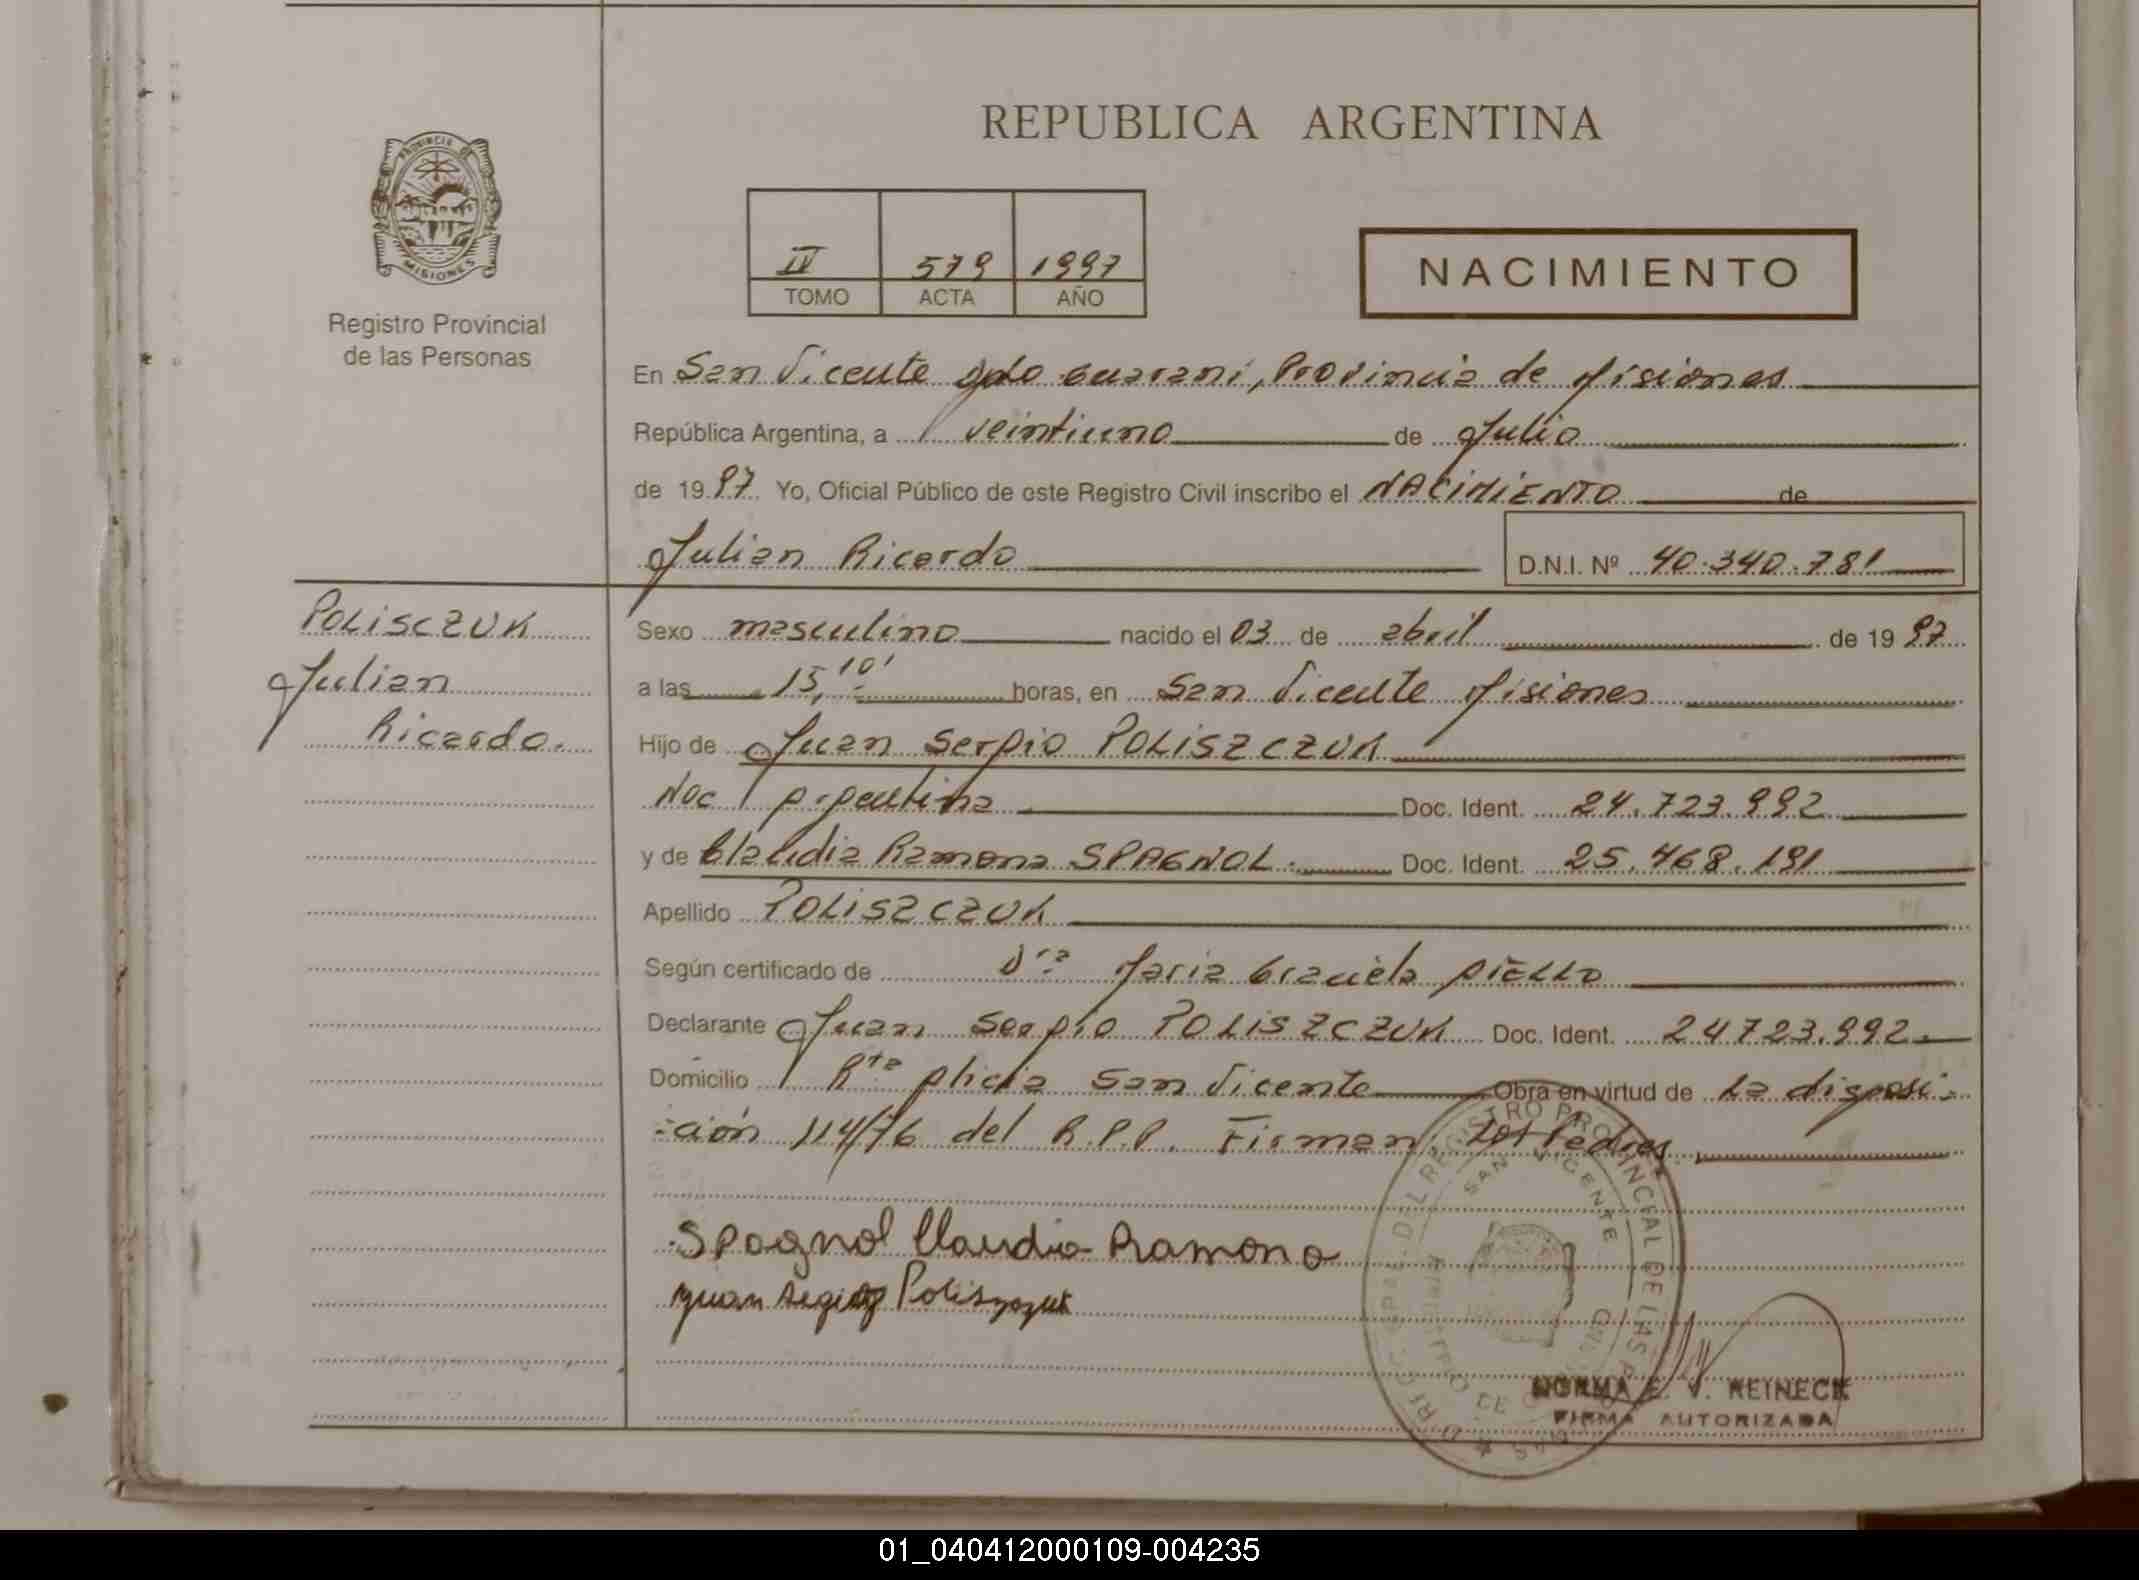 REPUBLICA ARGENTINA
PROVINCIA DE
MISIONES
Registro Provincial
de las Personas
IV 579 1997
TOMO ACTA AÑO
NACIMIENTO
En San Vicente Gdo Guarani, Provincia de Misiones
República Argentina, a veintiuno de Julio
de 1997 Yo, Oficial Público de este Registro Civil inscribo el NACIMIENTO de
Julian Ricardo D.N.I. Nº 40.340.781
POLISCZUK
Julian
Ricardo.
Sexo masculino nacido el 03 de abril de 1997
a las 15,10' horas, en San Vicente Misiones
Hijo de Juan Sergio POLISZCZUK
Nac Argentina Doc. Ident. 24.723.992
y de Claudia Ramona SPAGNOL. Doc. Ident. 25.468.191
Apellido POLISZCZUK
Según certificado de Dra Maria Graciela AIELLO
Declarante Juan Sergio POLISZCZUK Doc. Ident. 24723.992.
Domicilio Rta Alicia San Vicente Obra en virtud de La disposi-
-ción 114/76 del R.P.P. Firman Los Padres
Spagnol Claudia Ramona
Juan Sergio Poliszczuk
REGISTRO PROVINCIAL DE LAS
SAN VICENTE
NORMA E. V. REINECK
FIRMA AUTORIZADA
01_040412000109-004235